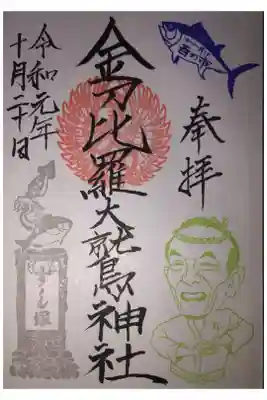 奉拝
金刀比羅大鷲神社
令和元年
十月二十日
すし塚